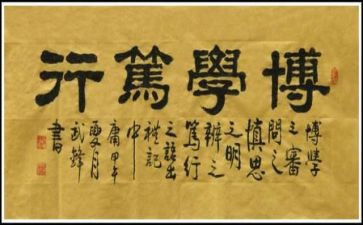 博學篤行
博學
之審
問之
慎思
之明
辨之
篤行
之語出
禮記
中
庸甲午
夏月
武鋒
書